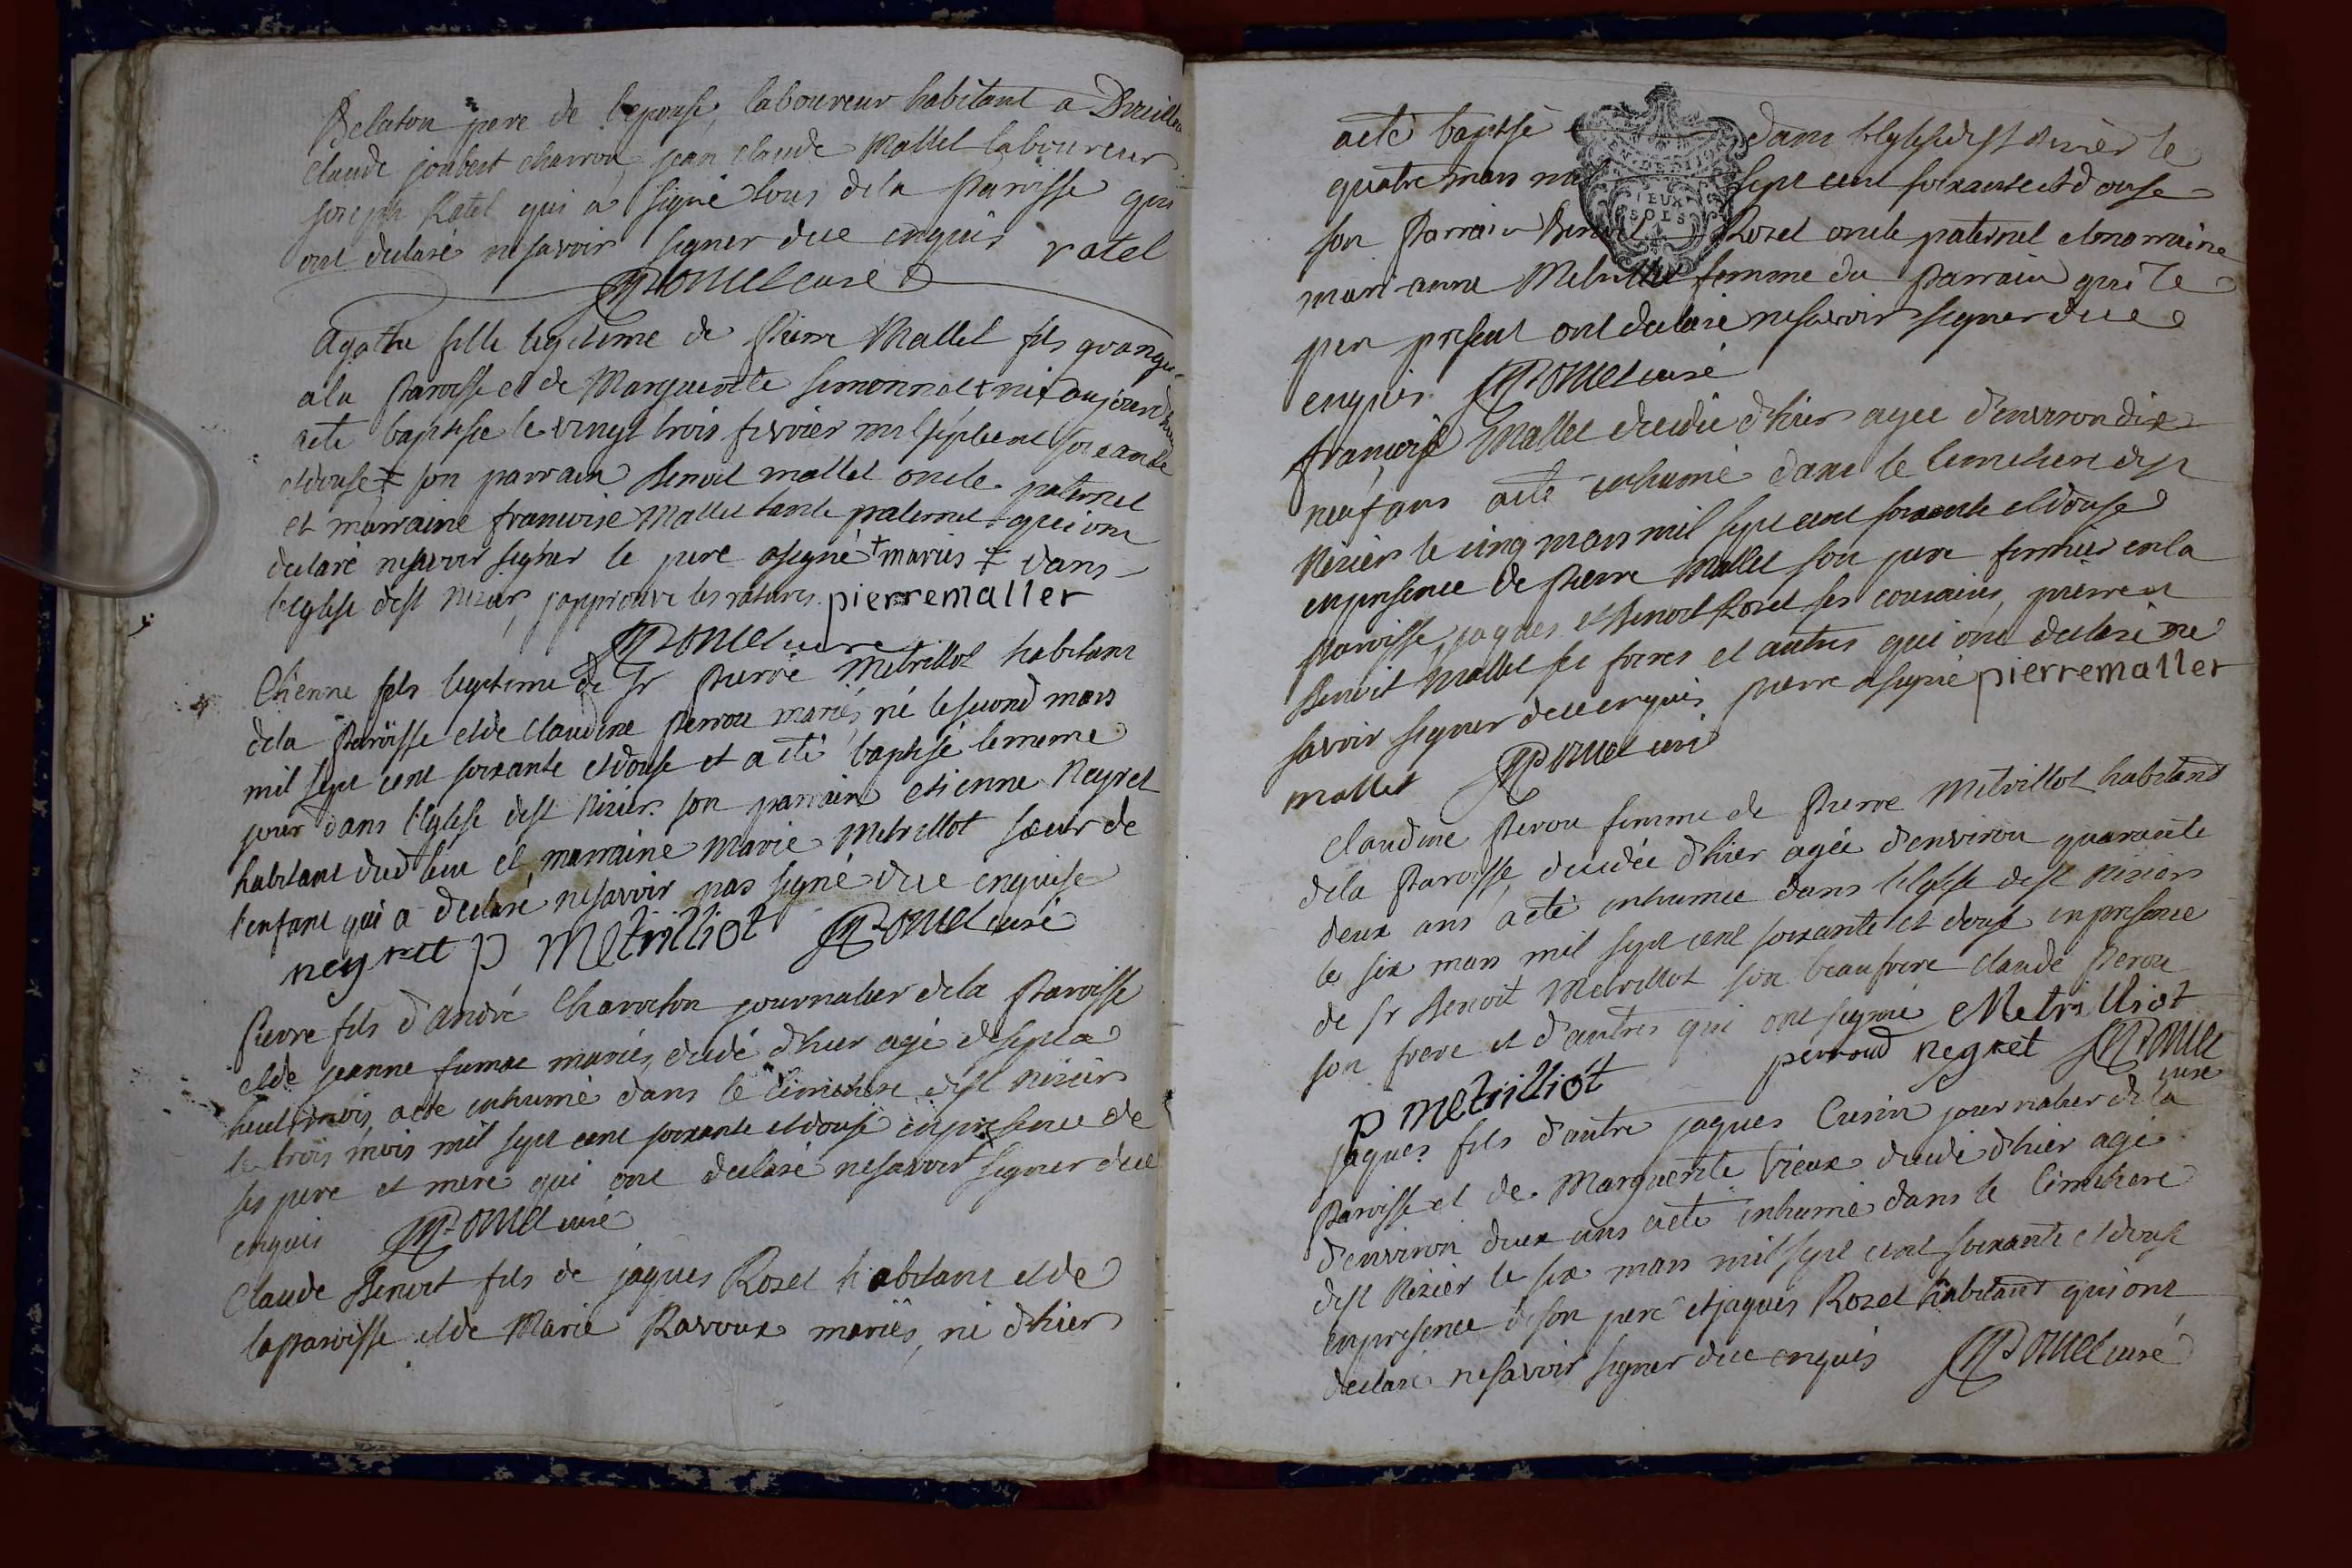 pere de lepouse, laboureur habitant a
claude joubert charron, jean claude Mallet laboureur
joseph Ratel qui a signé tous dela Paroisse qui
ont declaré nesavoir signer dece enquis ratel
curé
Agathe fille legitime de Pierre Mallet fils
ala Paroisse et de Marguerite simonnet
acte baptisée le vingt trois fevrier mil septcent soixante
etdouse ‡ son parrain Benoit mallet oncle paternel
et marraine francoise Mallet tante paternel qui ont
declaré nesavoir signer le pere asigné + mariés ‡ dans
leglise dest nizier, japprouve les ratures. pierremallet
curé
Etienne fils legitime de sr pierre Metrillot habitant
dela Paroisse etde Claudine perrou mariés, né lesecond mars
mil sept cent soixante etdouse et a eté baptisé lememe
jour dans l'Eglise dest Nizier. son parrain etienne Neyret
habitant dud lieu et marraine Marie Metrillot sœur de
l'enfant qui a declaré nesavoir pas signé dece enquise
neyret p Metrilliot curé
Pierre fils d'André journalier dela Paroisse
etde jeanne mariés, decedé d'hier agé desept a
huit mois, aeté inhumé dans le cimetiere dest nizier
le trois mars mil sept cent soixante etdouse enpresence de
ses pere et mere qui ont declaré nesavoir signer dece
enquis curé
Claude Benoit fils de jaques Rozet habitant etde
laparoisse etde Marie Ravoux mariés, né d'hier
aeté baptisé dans l'Eglise dest Nizier le
quatre mars mil sept cent soixante et douse
son Parrain Benoit Rozet oncle paternel etmarraine
mari-anne femme du Parrain qui le
pere present ont declaré nesavoir signer dece
enquis. curé
francoise Mallet decedée d'hier agee d'environ dix
neuf ans aeté inhumé dans le cimetiere dest
Nizier le cinq mars mil sept cent soixante etdouse
enpresence de Pierre Mallet son pere fermier enla
Paroisse, jaques et Benoit Rozet ses cousains, pierre et
Benoit Mallet ses freres et autres qui ont declaré ne
savoir signer dece enquis pierre a signé pierremallet
mallet curé
Claudine Perou femme de Pierre Metrillot habitant
dela Paroisse, decedée d'hier agée d'environ quarante
deux ans aeté inhumée dans l'Eglise dest Nizier
le six mars mil sept cent soixante et douse enpresence
de sr Benoit Metrillot son beaufrere claude Perou
son frere et d'autres qui ont signé Metrilliot
p metrilliot perroud neyret curé
jaques fils d'autre jaques Cusin journalier dela
Paroisse et de Marguerite Vieux decedé d'hier agé
d'environ deux ans aeté inhumé dans le Cimetiere
dest Nizier le six mars mil sept cent soixante etdouse
enpresence deson pere etjaques Rozet habitant qui ont
declaré nesavoir signer dece enquis curé